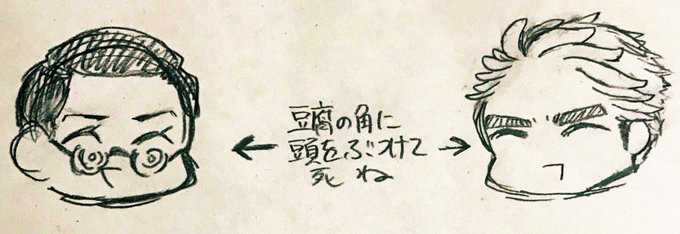 豆腐の角に
頭をぶつけて
死ね